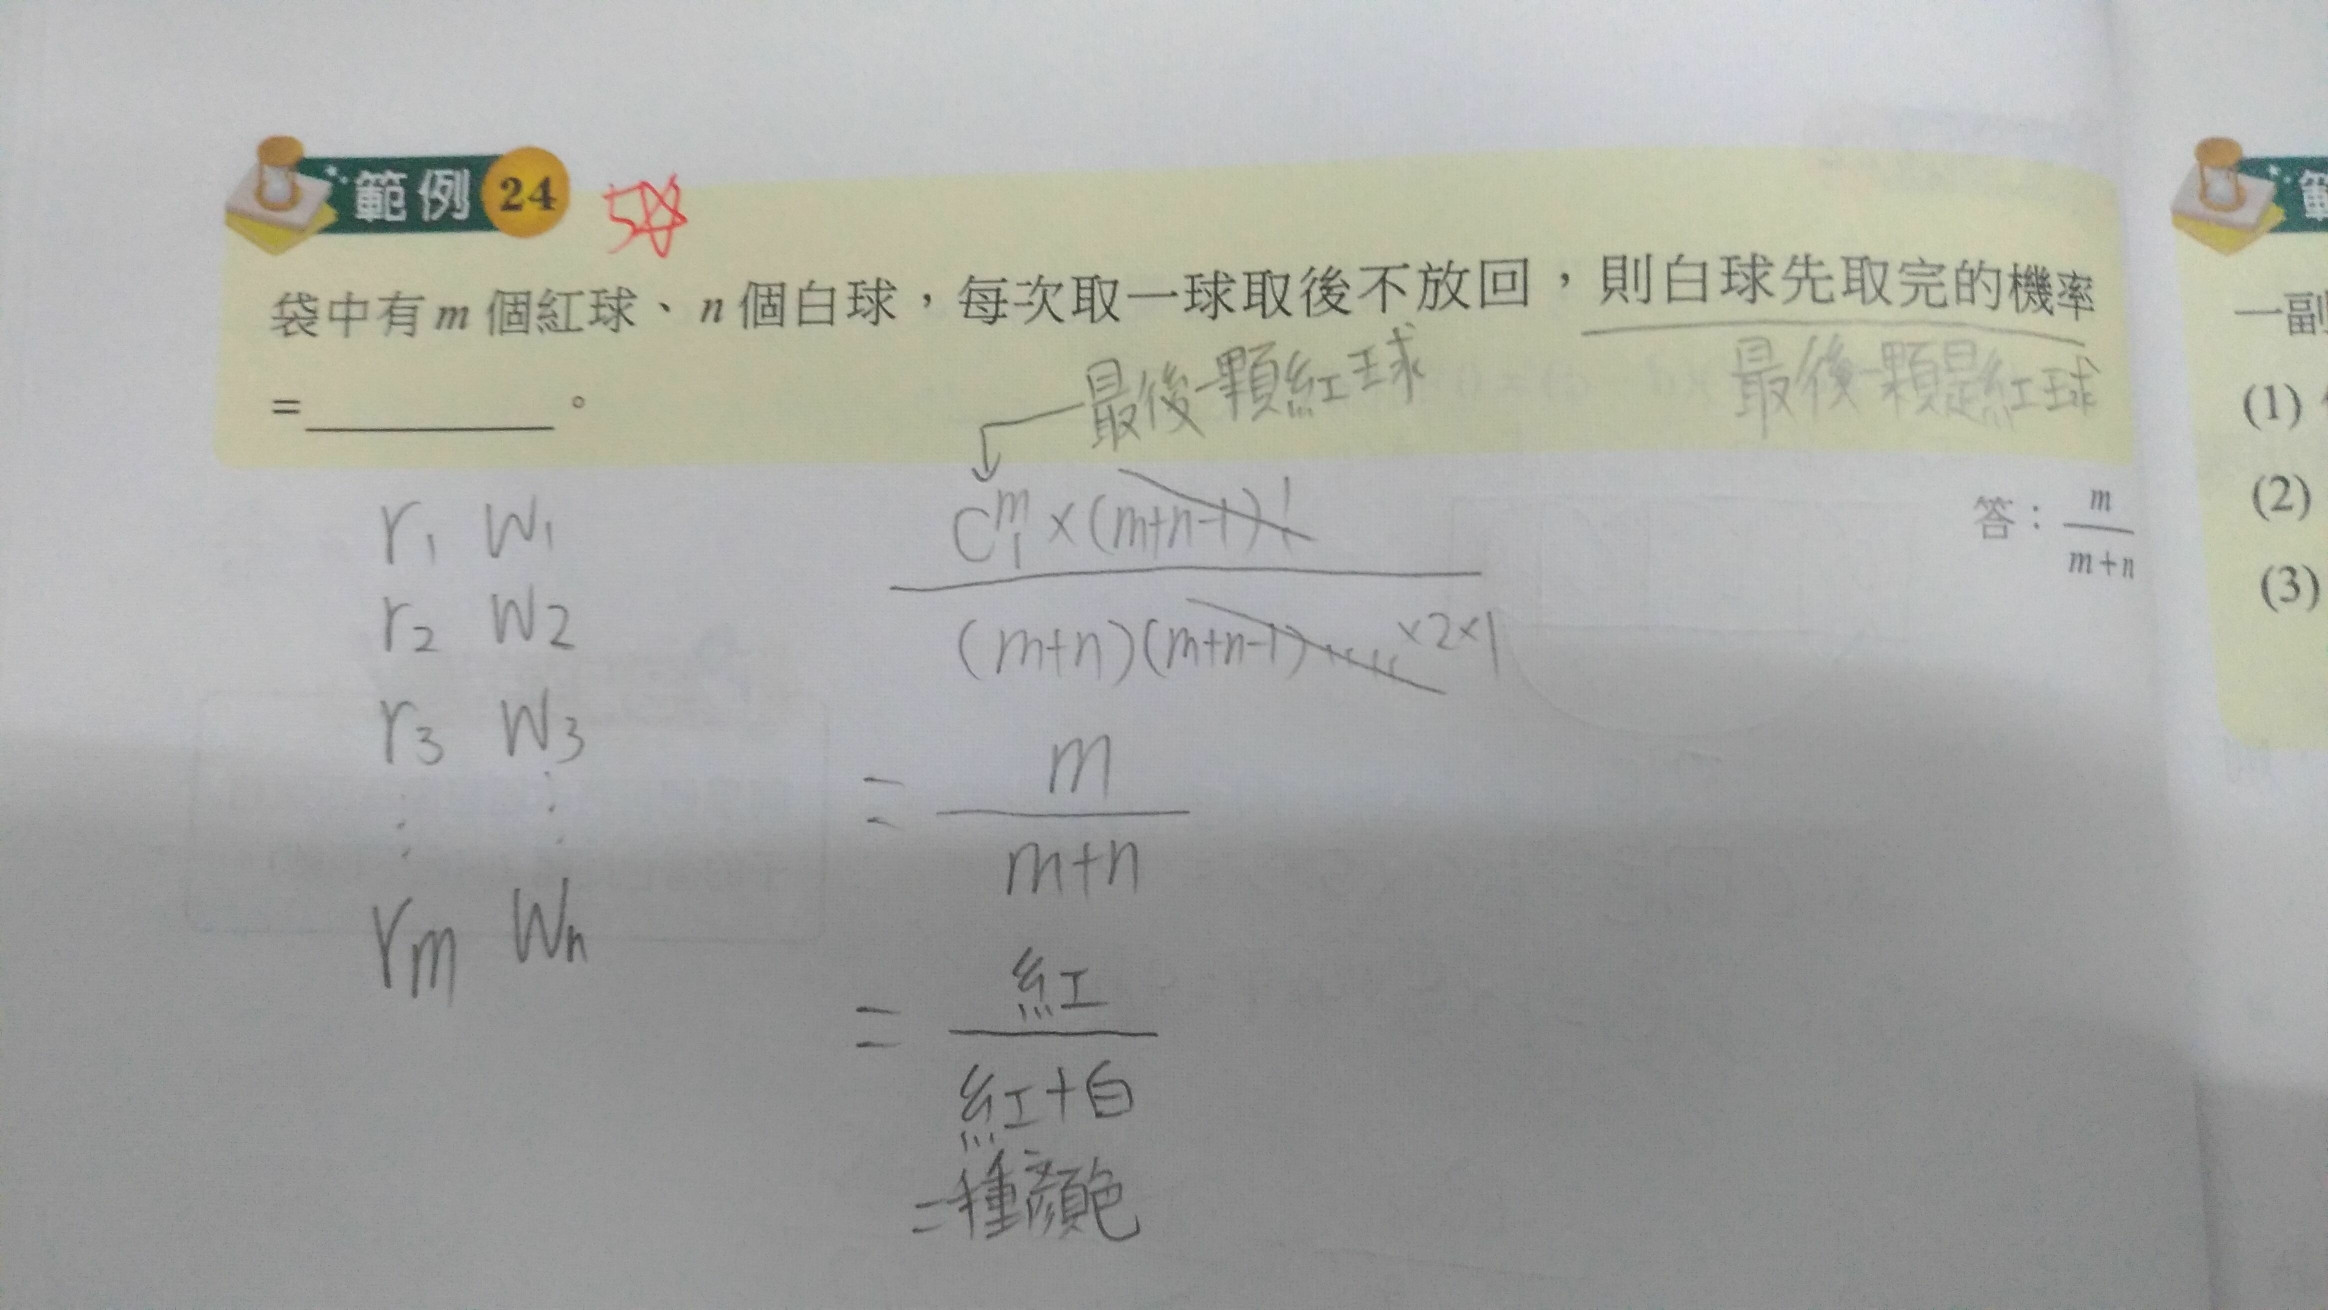 範例 24 5☆
袋中有 m 個紅球、n 個白球，每次取一球取後不放回，則白球先取完的機率
=＿＿＿＿。
最後一顆紅球
最後一顆是紅球
答：m/(m+n)
r₁ w₁
r₂ w₂
r₃ w₃
⋮ ⋮
rm wn
C₁ᵐ×(m+n-1)!
(m+n)(m+n-1)……×2×1
= m/(m+n)
= 紅/(紅+白)
二種顏色
範
一副
(1)
(2)
(3)